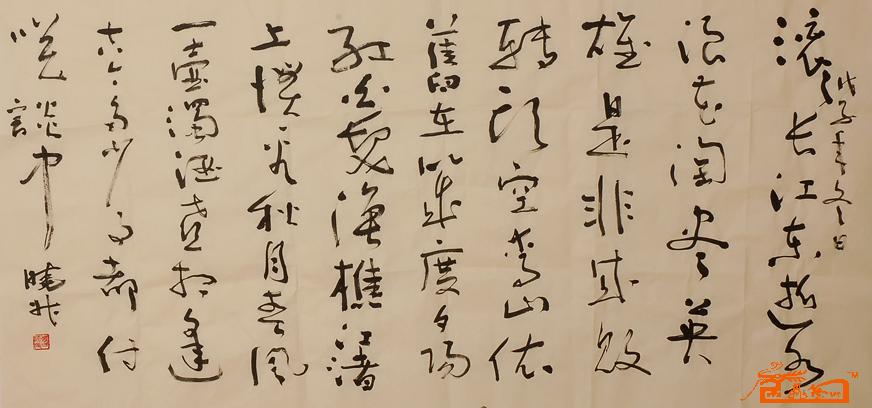 滚滚长江东逝水
浪花淘尽英
雄是非成败
转头空青山依
旧在几度夕阳
红白发渔樵江渚
上惯看秋月春风
一壶浊酒喜相逢
古今多少事都付
笑谈中
戊子年冬日
晓非